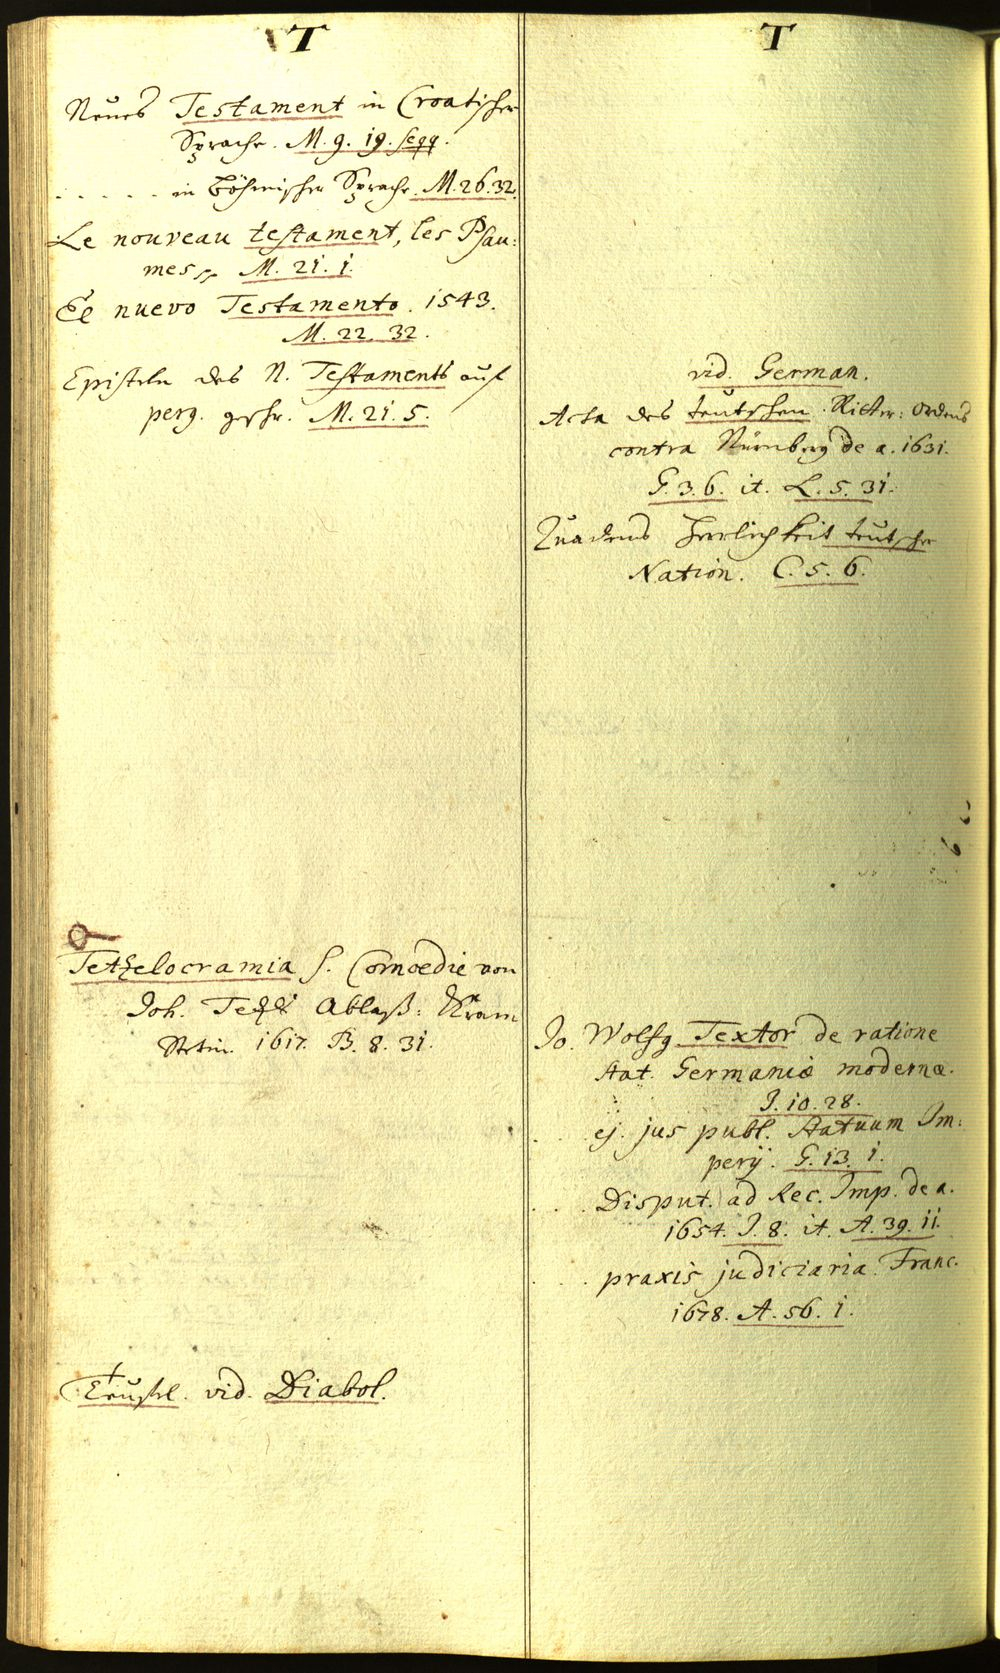 T
Neues Testament in Croatischer
Sprache. M. 9. 19. seqq.
. . . . . in Böhmischer Sprache. M. 26. 32.
Le nouveau testament, les Psau:
mes M. 21. 1.
El nuevo Testamento. 1543.
M. 22. 32.
Episteln des N. Testaments auf
perg. geschr. M. 21. 5.
Tetzelocramia s. Comoedie von
Joh. Ablaß: Kram
Stetin. 1617. B. 8. 31.
Teufel. vid. Diabol.
T
vid. German.
Acta des teutschen Ritter: Ordens
contra Nürnberg de a. 1631.
G. 3. 6. it. L. 5. 31.
Quadens Herrlichkeit teutscher
Nation. C. 5. 6.
Jo. Wolfg. Textor de ratione
stat. Germaniæ modernæ.
J. 10. 28.
. . . ej. jus publ. statuum Im:
perij. G. 13. 1.
. . . . Disput. ad Rec. Imp. de a.
1654. J. 8. it. A. 39. 11.
. . . . praxis judiciaria. Franc.
1678. A. 56. 1.